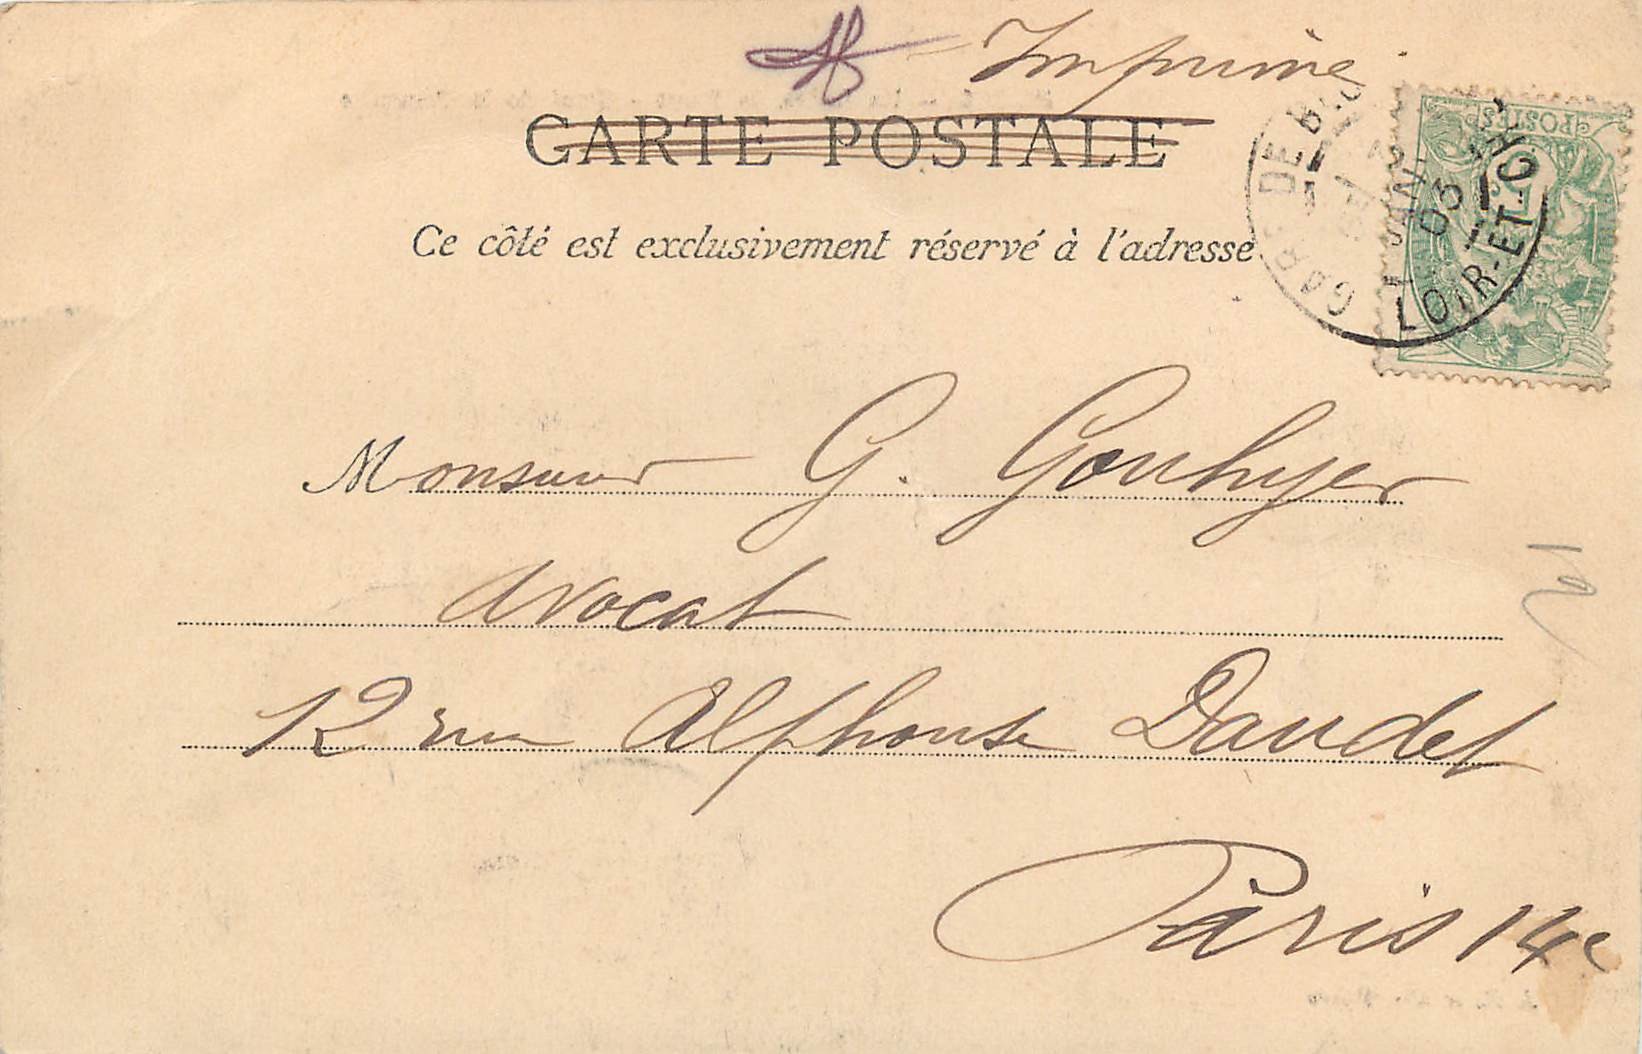 Imprimé
CARTE POSTALE
Ce côté est exclusivement réservé à l'adresse
POSTES
GARE DE BLOIS
1 JANV
03
LOIR-ET-CHER
Monsieur G. Gouhyer
avocat
12 rue Alphonse Daudet
Paris 14e